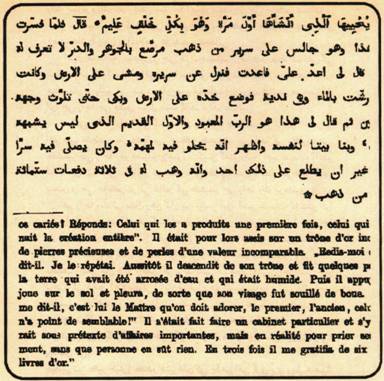 يُحْيِيهَا ٱلَّذِي أَنْشَأَهَا أَوَّلَ مَرَّةٍ وَهُوَ بِكُلِّ خَلْقٍ عَلِيمٌ * قال فلمّا فسرت
هذا وهو جالس على سرير من ذهب مرصّع بالجوهر والدرّ لا تعرف له
قال لى اعدْ علىّ فاعدت فنزل عن سريره ومشى على الارض وكانت
رشّت بالماء وهى ندية فوضع خدّه على الارض وبكى حتّى تلوّث وجهه
ثم قال لى هذا هو الربّ المعبود والاوّل القديم الذى ليس يشبهه
وبنا بيتا لنفسه واظهر انّه يخلو فيه لمهمّه وكان يصلّى فيه سرّا
غير ان يطلع على ذلك احد وانّه وهب له فى ثلاثة دفعات ستّمائة
من ذهب *
os cariés? Réponds: Celui qui les a produits une première fois, celui qui
naît la création entière". Il était pour lors assis sur un trône d'or
de pierres précieuses et de perles d'une valeur incomparable. „Redis-moi
dit-il. Je le répétai. Aussitôt il descendit de son trône et fit quelques
la terre qui avait été arrosée d'eau et qui était humide. Puis il
joue sur le sol et pleura, de sorte que son visage fut souillé de boue.
me dit-il, c'est lui le Maître qu'on doit adorer, le premier, l'ancien,
n'a point de semblable!" Il s'était fait faire un cabinet particulier et s'y
rait sous prétexte d'affaires importantes, mais en réalité pour prier
ment, sans que personne en sût rien. En trois fois il me gratifia de six
livres d'or."